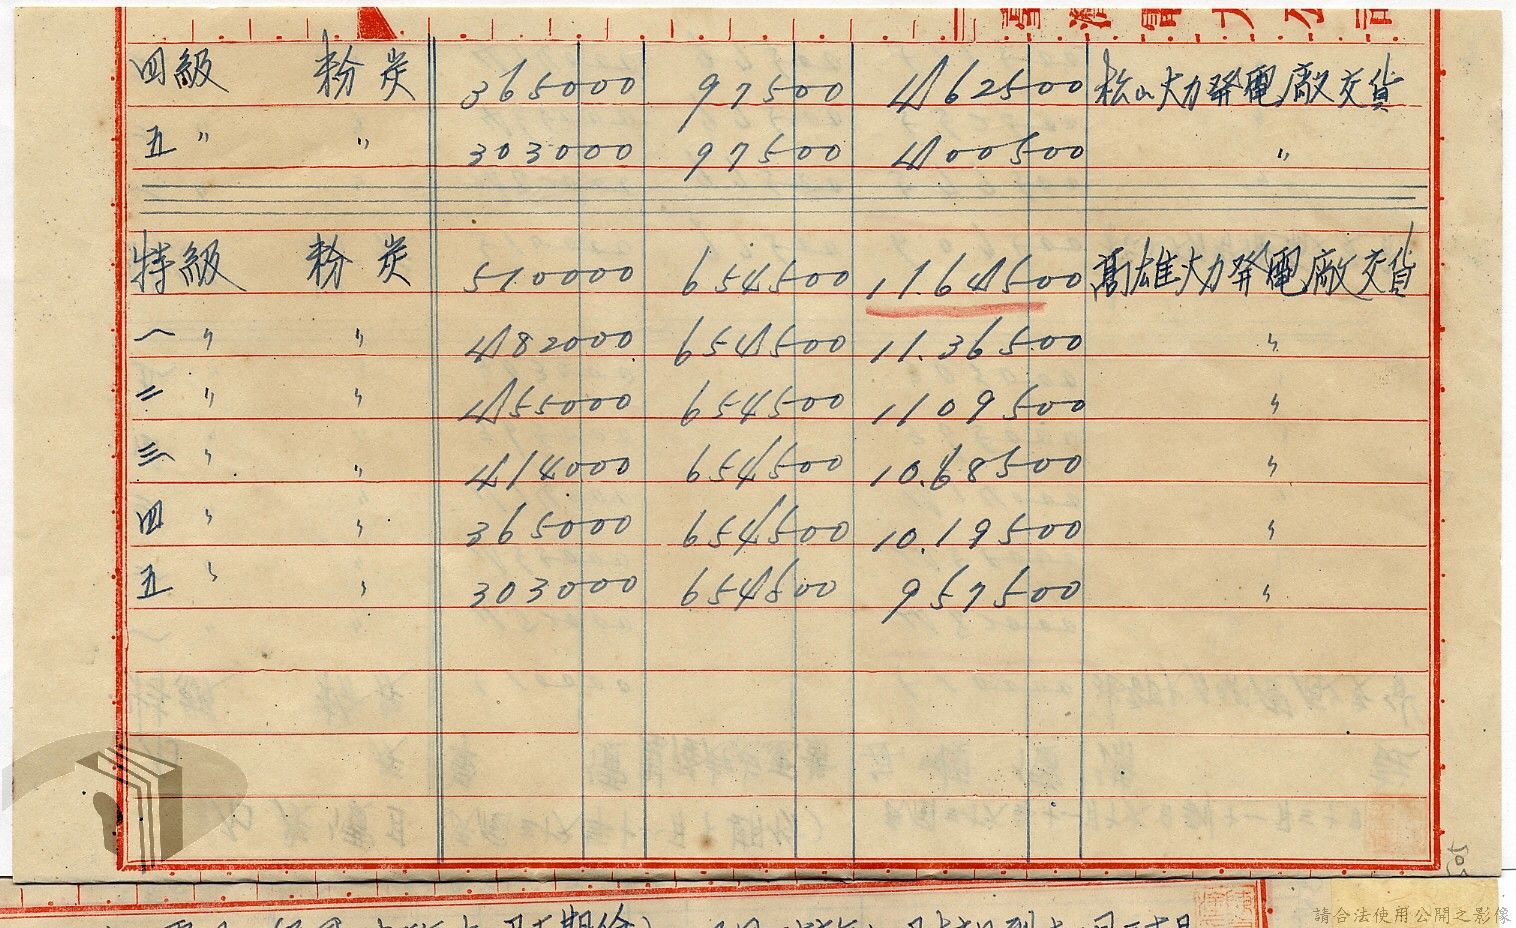 四級 粉炭 365000 97500 462500 松山火力発電廠交貨
五〃 〃 303000 97500 400500 〃
特級 粉炭 510000 654500 11.64500 高雄火力発電廠交貨
一〃 〃 482000 654500 11.36500 〃
二〃 〃 455000 654500 1109500 〃
三〃 〃 414000 654500 10.68500 〃
四〃 〃 365000 654500 10.19500 〃
五〃 〃 303000 654500 957500 〃
請合法使用公開之影像